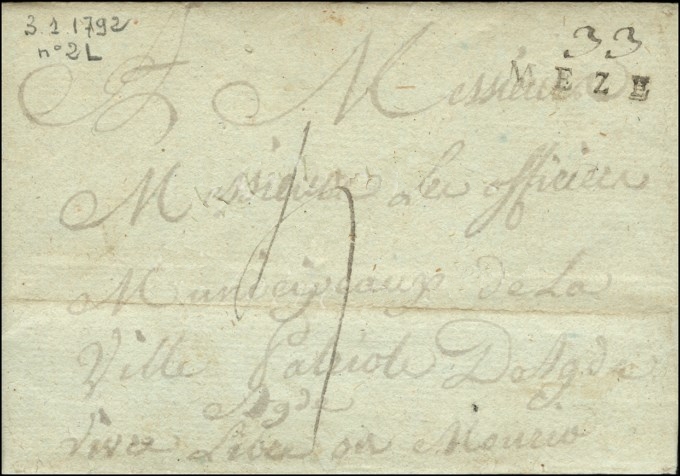 3 1 1792
n° 2L
33
MEZE
A Messieurs
Messieurs les officiers
Municipaux de La
Ville Patriote D'Agde
Agde
Vivre Libre ou Mourir